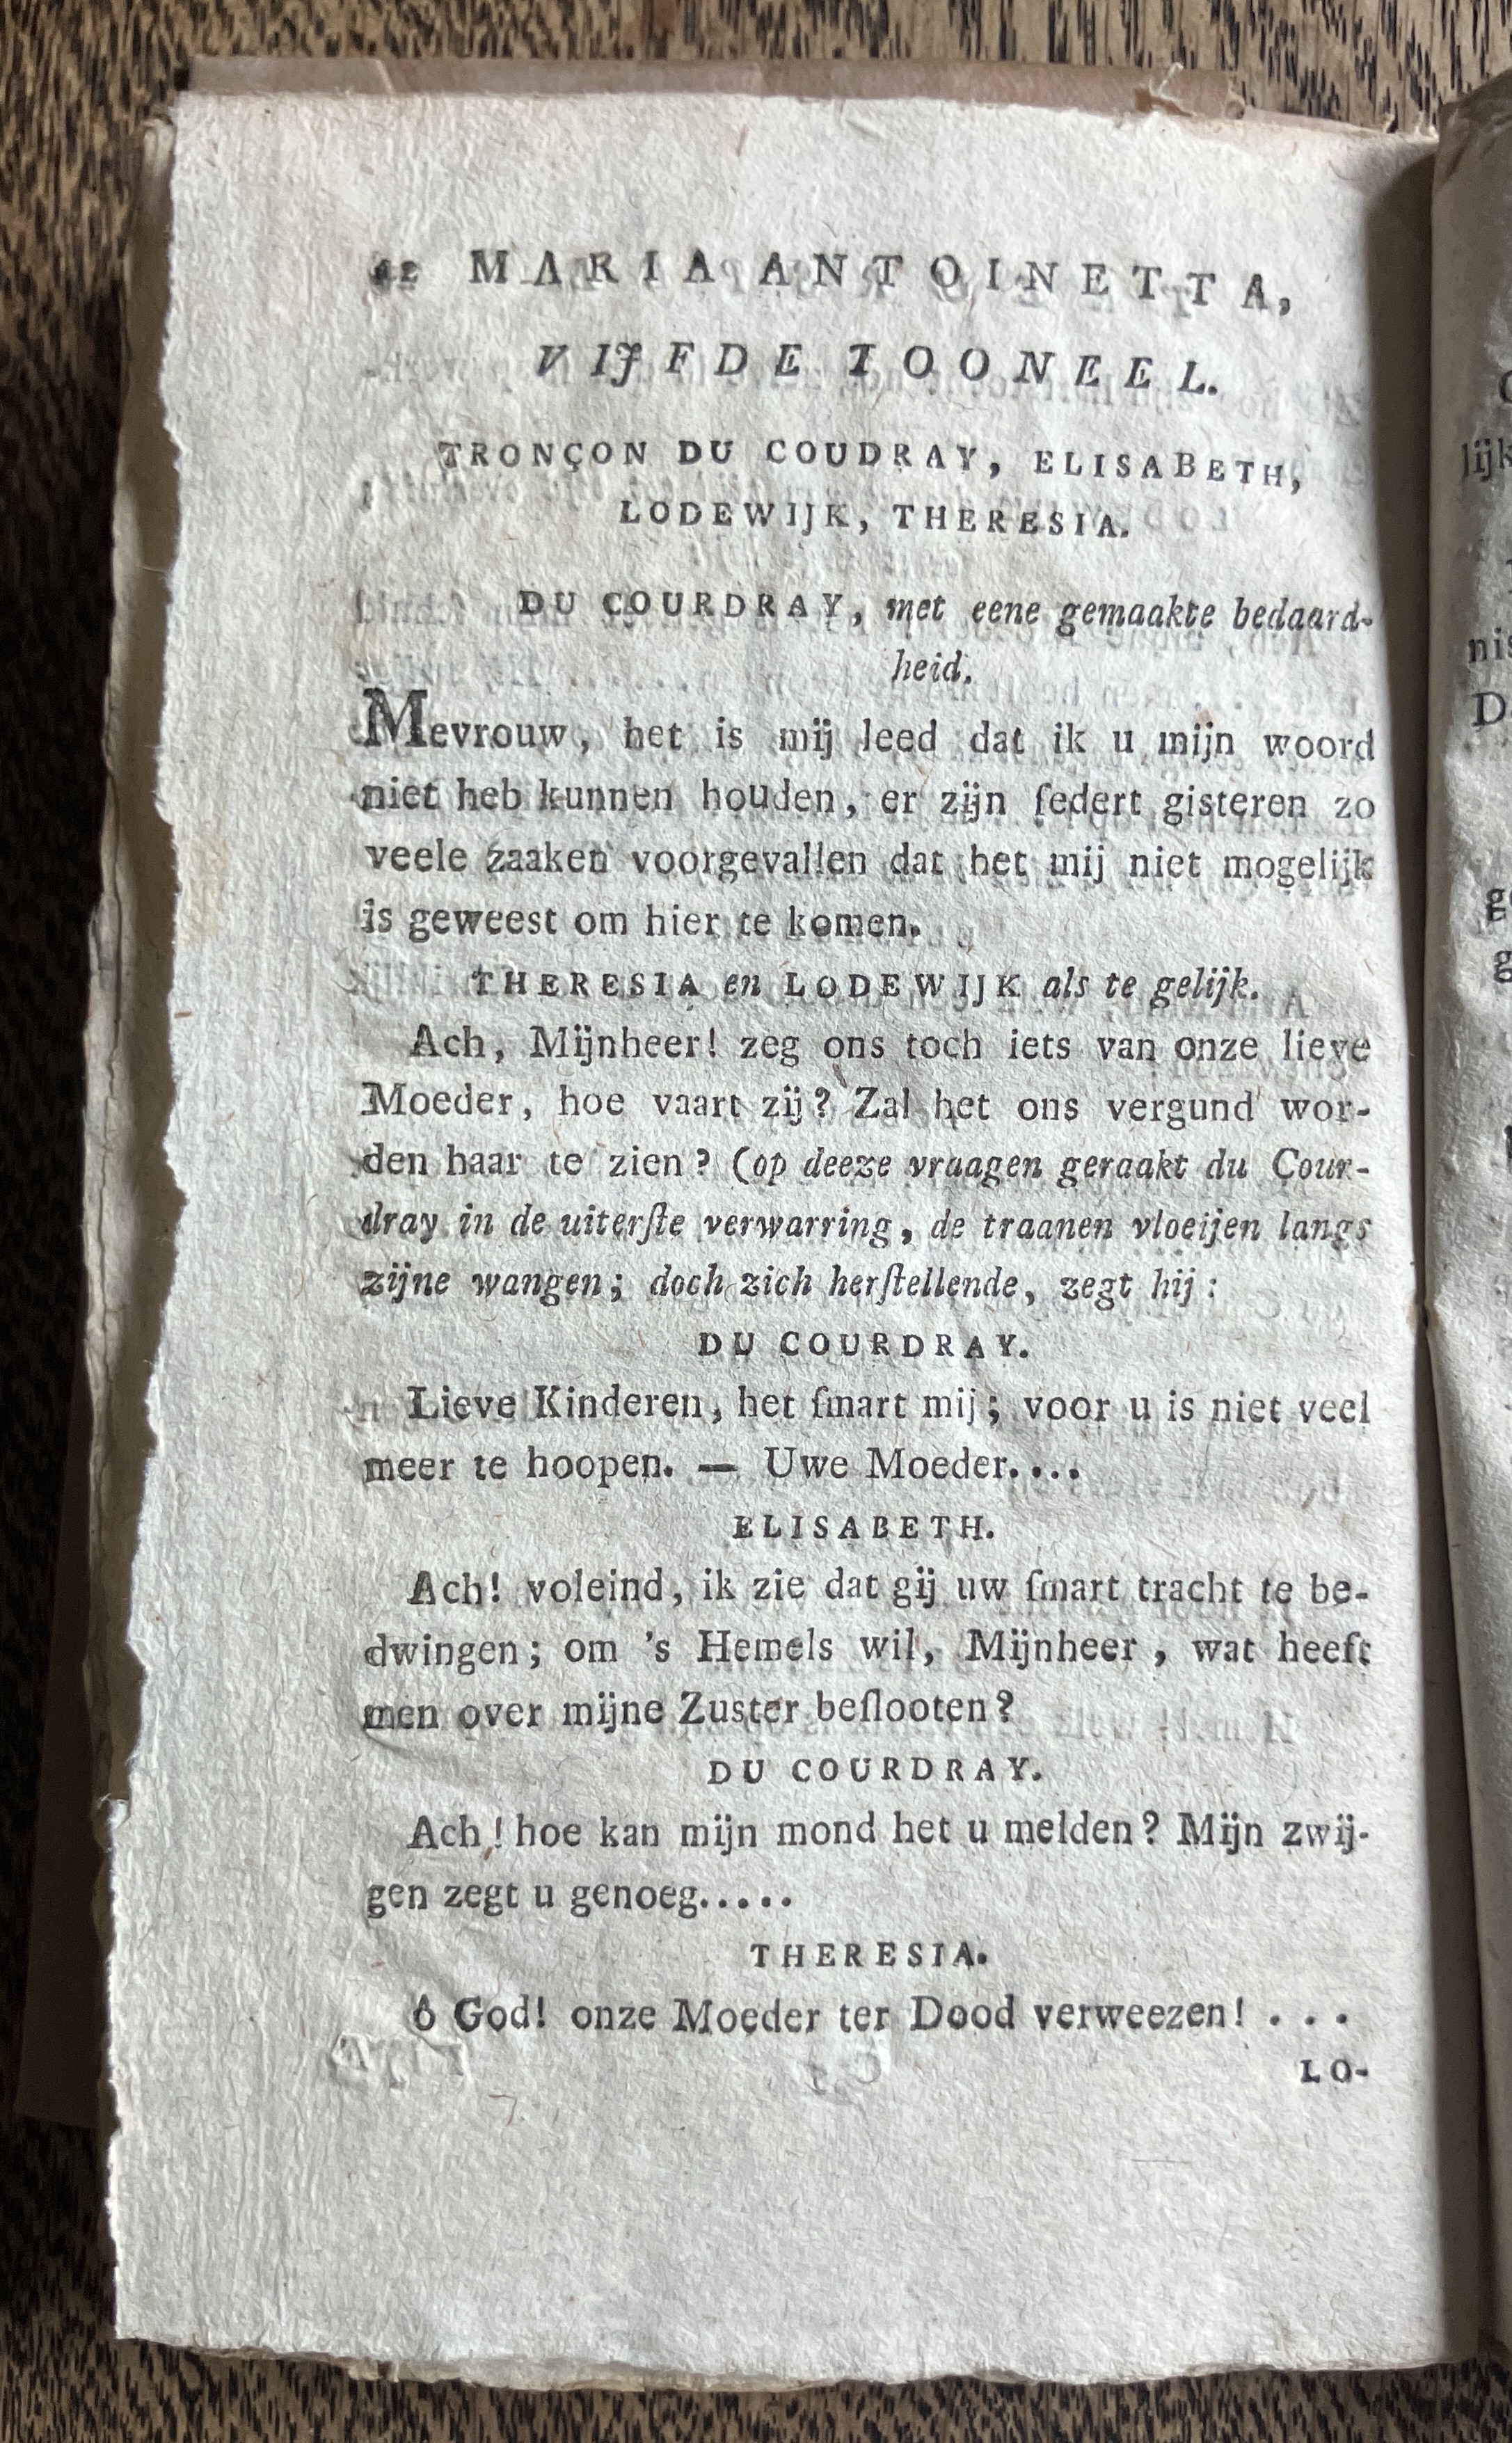 MARIA ANTOINETTA,
VIJFDE TOONEEL.
TRONÇON DU COUDRAY, ELISABETH,
LODEWIJK, THERESIA.
DU COURDRAY, met eene gemaakte bedaard-
heid.
Mevrouw, het is mij leed dat ik u mijn woord
niet heb kunnen houden, er zijn ſedert gisteren zo
veele zaaken voorgevallen dat het mij niet mogelijk
is geweest om hier te komen.
THERESIA en LODEWIJK als te gelijk.
Ach, Mijnheer! zeg ons toch iets van onze lieve
Moeder, hoe vaart zij? Zal het ons vergund wor-
den haar te zien? (op deeze vraagen geraakt du Cour-
dray in de uiterſte verwarring, de traanen vloeijen langs
zijne wangen; doch zich herſtellende, zegt hij:
DU COURDRAY.
Lieve Kinderen, het ſmart mij; voor u is niet veel
meer te hoopen. — Uwe Moeder....
ELISABETH.
Ach! voleind, ik zie dat gij uw ſmart tracht te be-
dwingen; om 's Hemels wil, Mijnheer, wat heeft
men over mijne Zuster beſlooten?
DU COURDRAY.
Ach! hoe kan mijn mond het u melden? Mijn zwij-
gen zegt u genoeg.....
THERESIA.
ô God! onze Moeder ter Dood verweezen! . . .
LO-
lijk
nis
D